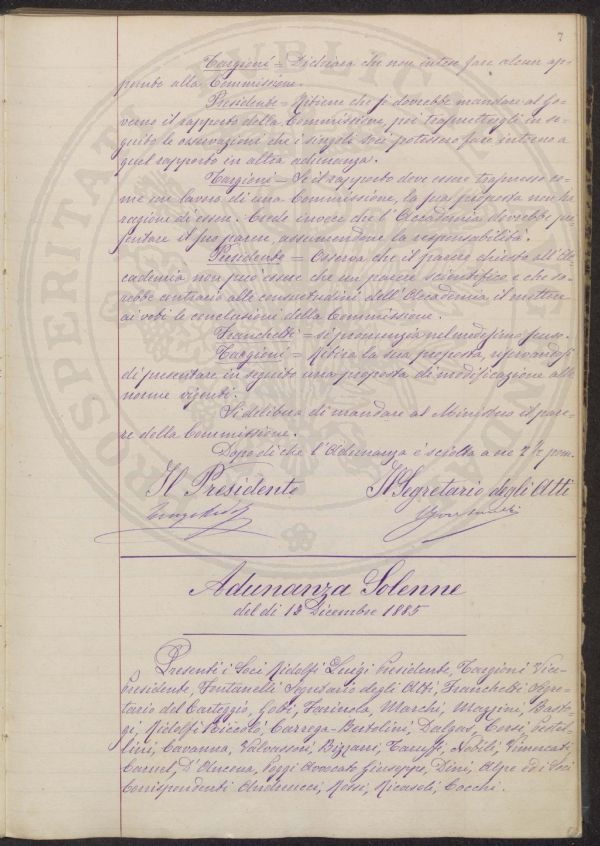 7
Targioni = Dichiara che non intese fare alcun ap-
punto alla Commissione.
Presidente = Ritiene che si dovrebbe mandare al Go-
verno il rapporto della Commissione, poi trasmettergli in se-
guito le osservazioni che i singoli soci potessero fare intorno a
quel rapporto in altra adunanza.
Targioni = Se il rapporto deve essere trasmesso co-
me un lavoro di una Commissione, la sua proposta non ha
ragioni di essere. Crede invece che l'Accademia dovrebbe pre-
sentare il suo parere, assumendone la responsabilità.
Presidente = Osserva che il parere chiesto all'Ac-
cademia non può essere che un parere scientifico e che sa-
rebbe contrario alle consuetudini dell'Accademia, il mettere
ai voti le conclusioni della Commissione.
Franchetti = si pronunzia nel medesimo senso.
Targioni = Ritira la sua proposta, riservandosi
di presentare in seguito una proposta di modificazione alle
norme vigenti.
Si delibera di mandare al Ministero il pare-
re della Commissione.
Dopo di che l'Adunanza è sciolta a ore 2 1/2 pom.
Il Presidente Il Segretario degli Atti
Adunanza Solenne
del dì 13 Dicembre 1885
Presenti i Soci Ridolfi Luigi Presidente, Targioni Vice-
Presidente, Fontanelli Segretario degli Atti, Franchetti Segre-
tario del Carteggio, Gobi, Farinola, Marchi, Mazzini, Bastog-
gi, Ridolfi Niccolò, Carrega-Bertolini, Dalgas, Corsi, Pestel-
lini, Cavanna, Valvassori, Bizzarri, Tanuffi, Nobili, Vimercati,
Caruel, D'Ancona, Poggi Avvocato Giuseppe, Dini, Alpe ed i Soci
Corrispondenti Andreucci, Rossi, Ricasoli, Cocchi.